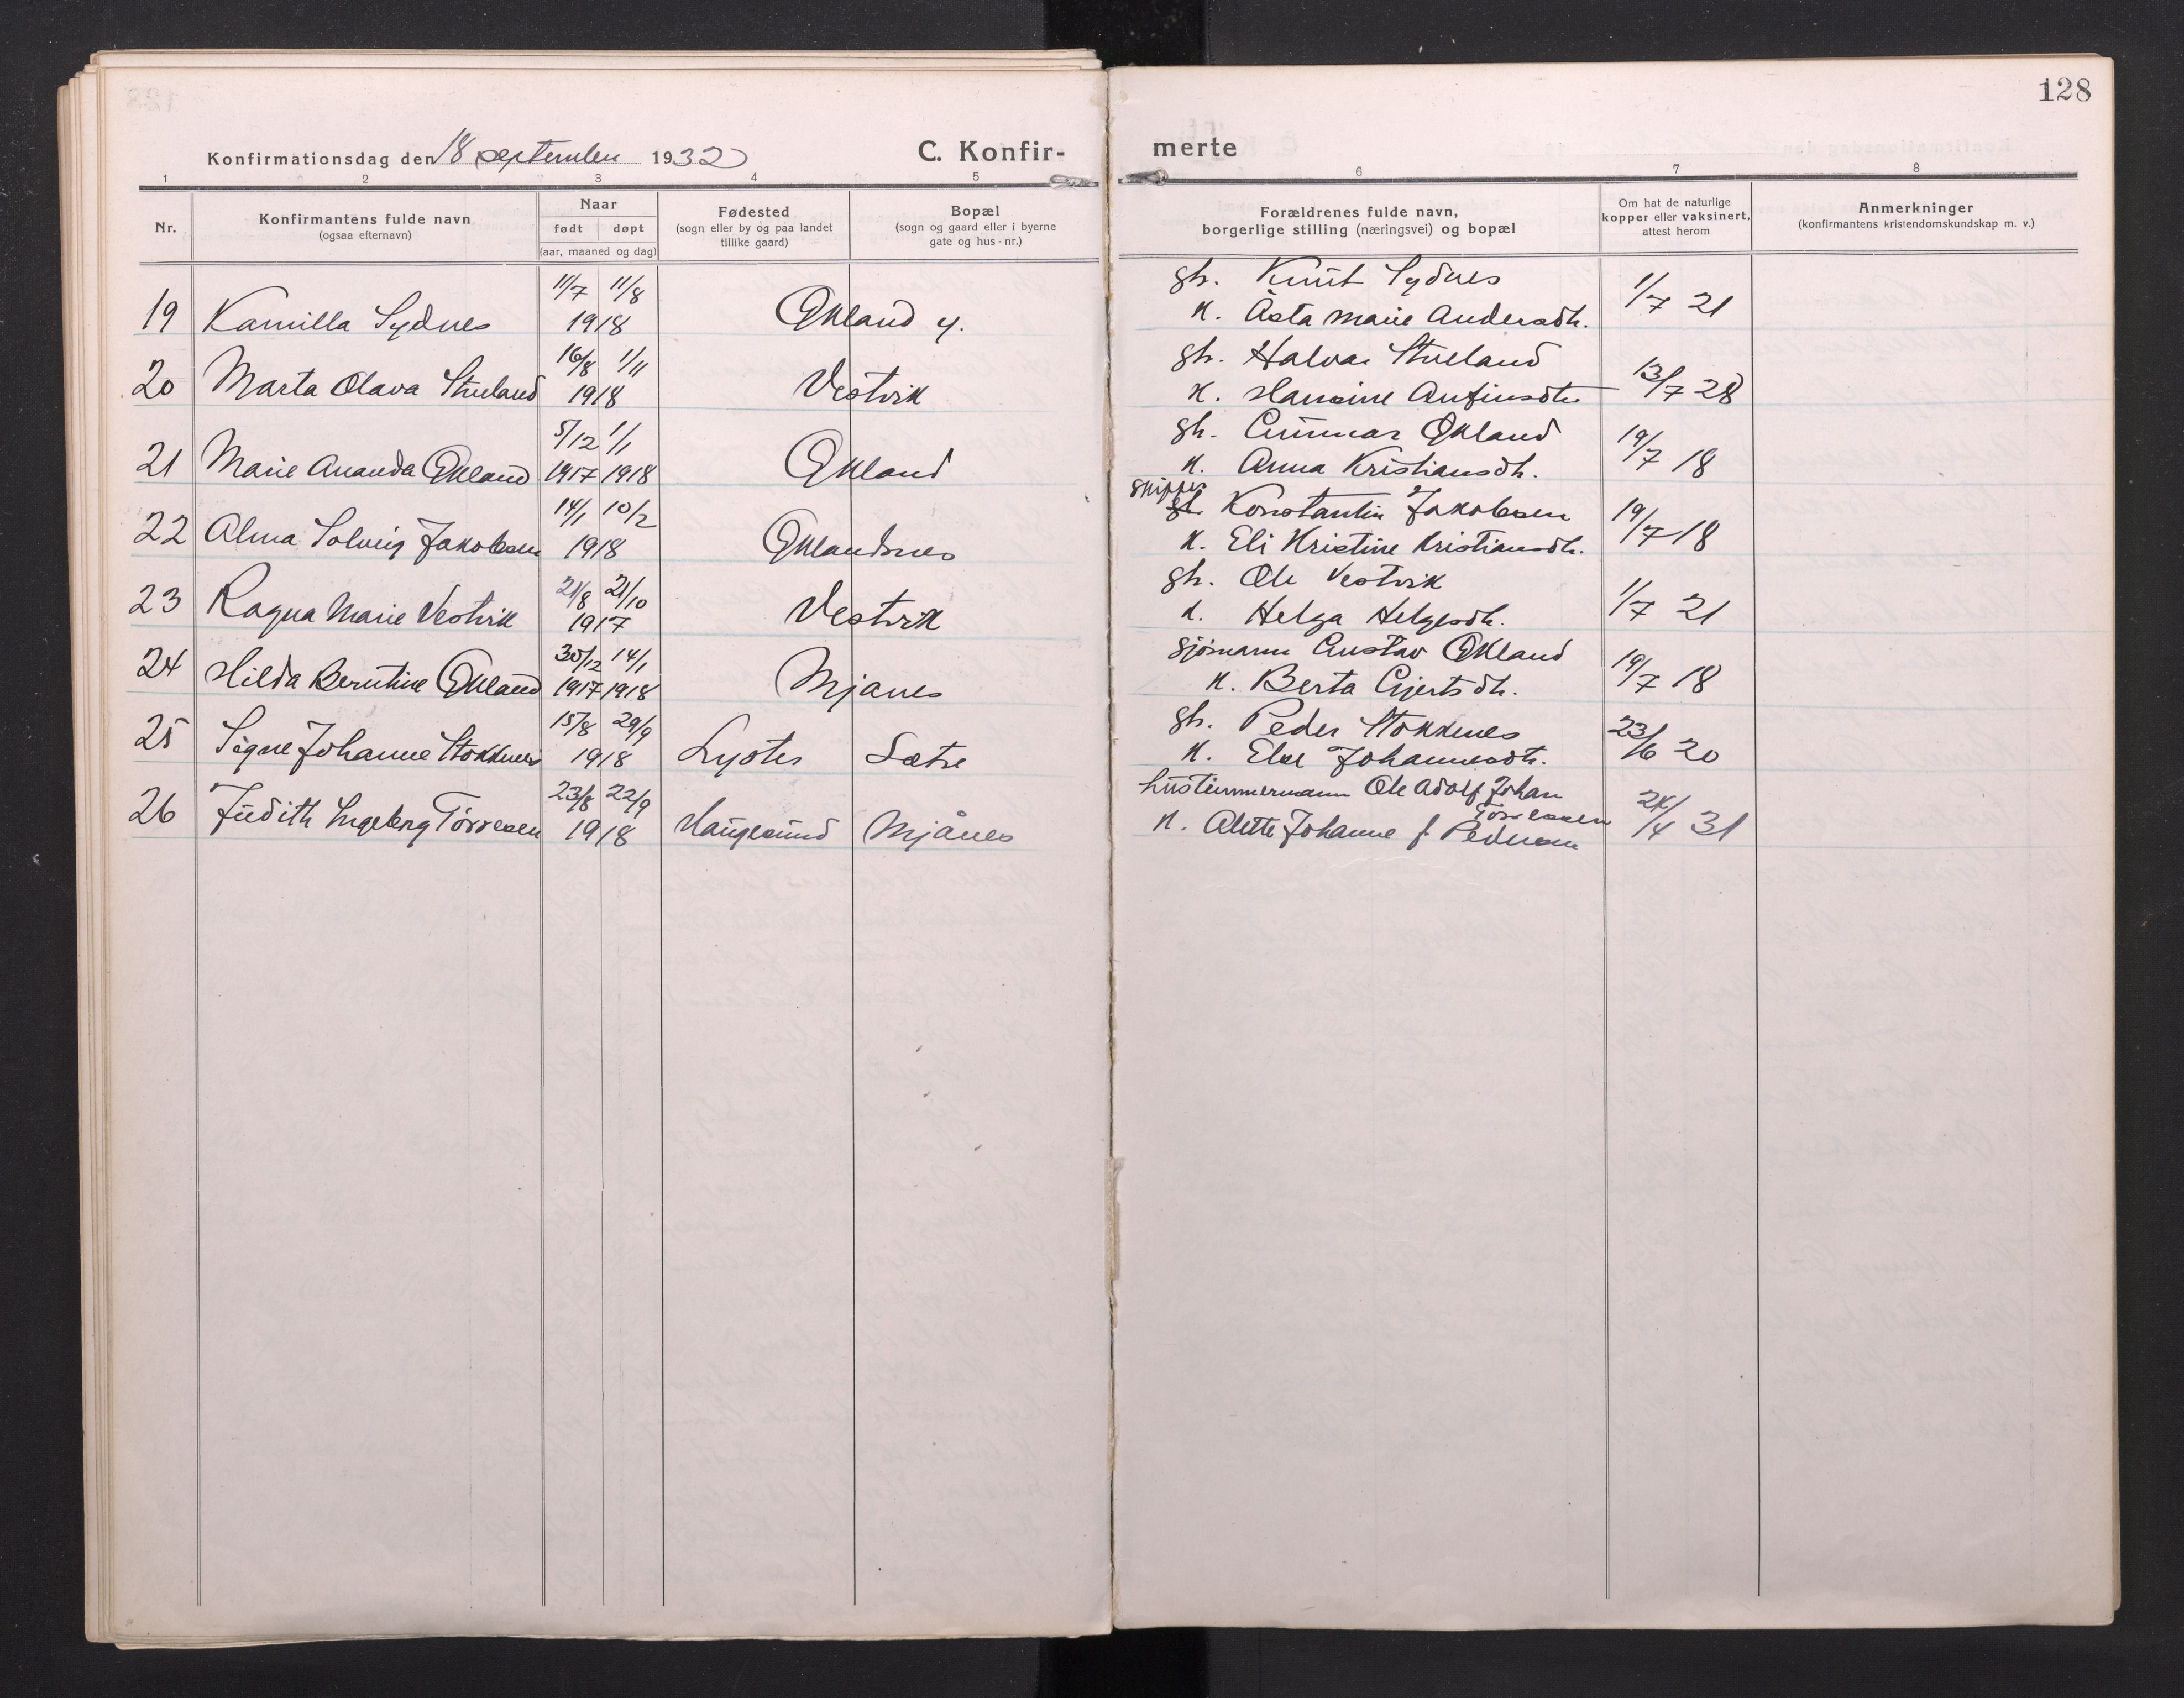 128
Konfirmationsdag den 18 september 1932
C. Konfir-
merte
1 2 3 4 5 6 7 8
Nr.
Konfirmantens fulde navn
(ogsaa efternavn)
Naar
født døpt
(aar, maaned og dag)
Fødested
(sogn eller by og paa landet
tillike gaard)
Bopæl
(sogn og gaard eller i byerne
gate og hus-nr.)
Forældrenes fulde navn,
borgerlige stilling (næringsvei) og bopæl
Om hat de naturlige
kopper eller vaksinert,
attest herom
Anmerkninger
(konfirmantens kristendomskundskap m. v.)
11/7 11/8 gbr. Knut Sydnes
19 Kamilla Sydnes 1918 Økland y. k. Åsta Marie Andersdtr. 1/7 21
16/8 1/11 gbr. Halvar Stueland
20 Marta Olava Stueland 1918 Vestvik k. Hansine Anfinsdtr. 13/7 28
5/12 1/1 gbr. Gunnar Økland
21 Marie Ananda Økland 1917 1918 Økland k. Anna Kristiansdtr. 19/7 18
14/1 10/2 skipper Konstantin Jakobsen
22 Alma Solveig Jakobsen 1918 Øklandsnes k. Eli Kristine Kristiansdtr. 19/7 18
21/8 21/10 gbr. Ole Vestvik
23 Ragna Marie Vestvik 1917 Vestvik k. Helga Helgesdtr. 1/7 21
30/12 14/1 sjømann Gustav Økland
24 Hilda Berntine Økland 1917 1918 Mjånes k. Berta Gjertsdtr. 19/7 18
15/8 29/9 gbr. Peder Stokknes
25 Signe Johanne Stokknes 1918 Lyster Sætre k. Else Johannesdtr. 23/6 20
23/8 22/9 hustømmermann Ole Adolf Johan
Tørresen
26 Judith Ingeborg Tørresen 1918 Haugesund Mjånes k. Alette Johanne f. Pedersen 24/4 31